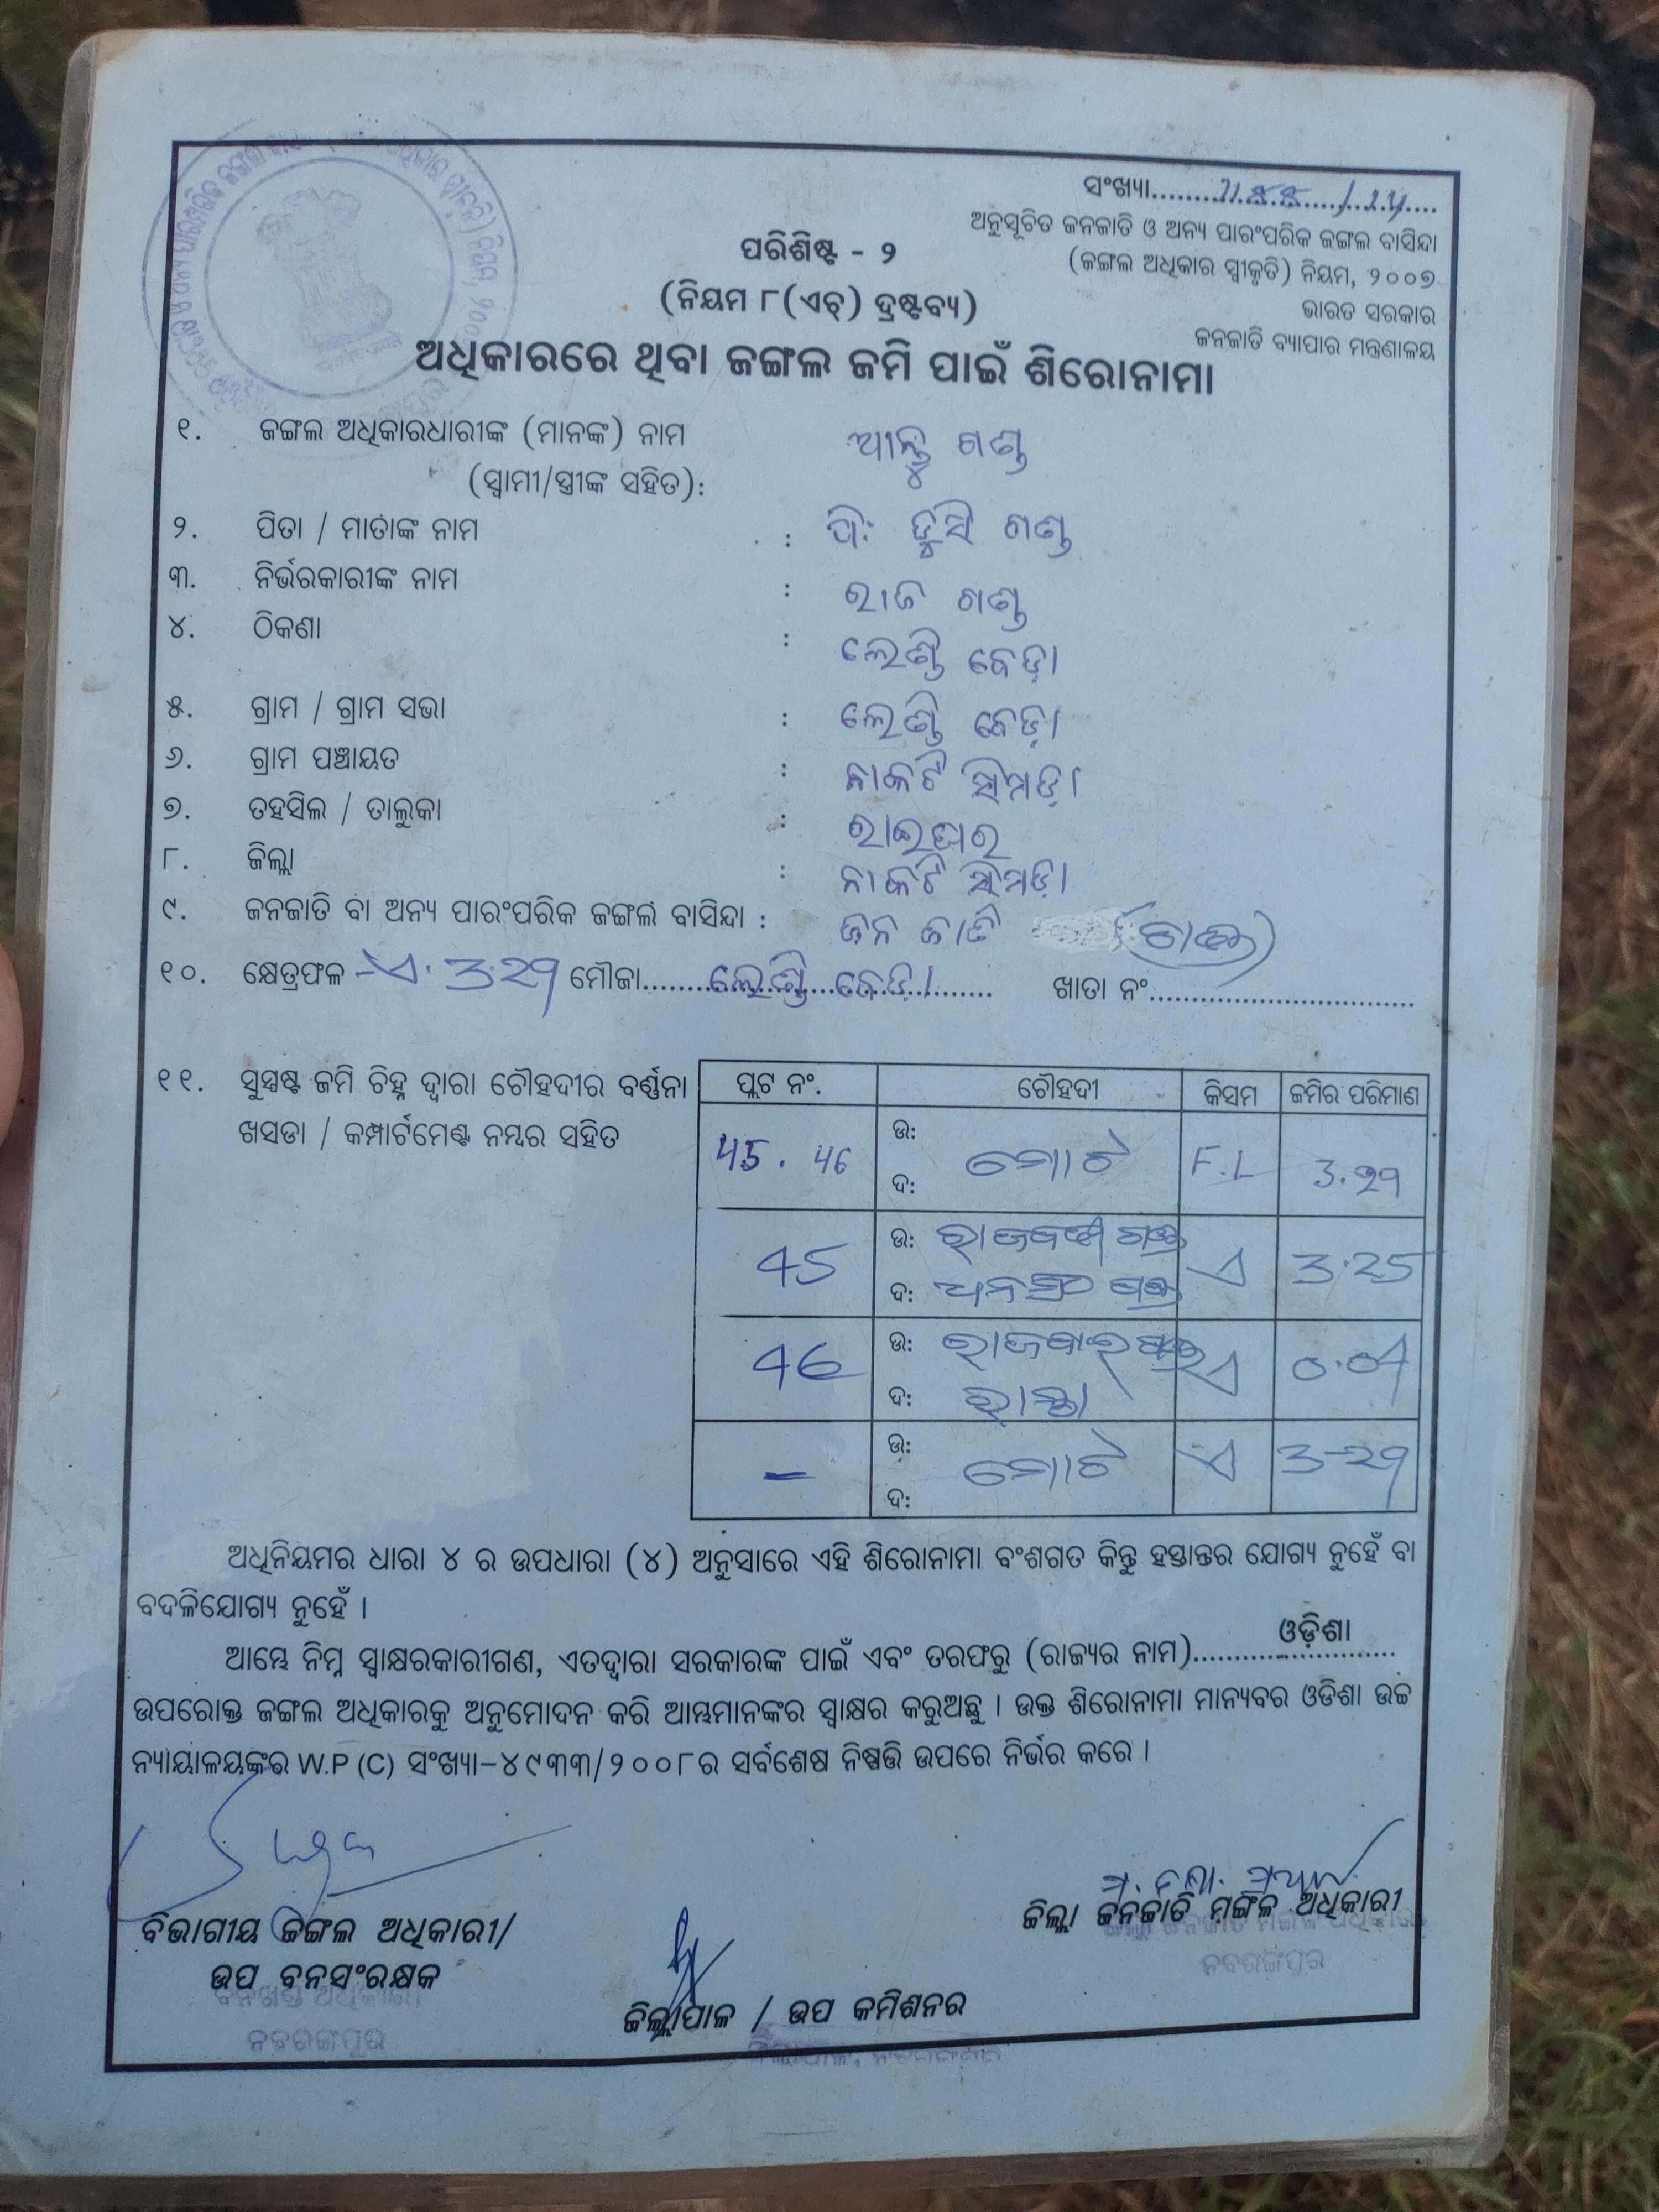 ସଂଖ୍ୟା
ଅନୁସୂଚିତ ଜନଜାତି ଓ ଅନ୍ୟ ପାରଂପରିକ ଜଙ୍ଗଲ ବାସିନ୍ଦା
(ଜଙ୍ଗଲ ଅଧିକାର ସ୍ୱୀକୃତି) ନିୟମ, ୨୦୦୭
ଭାରତ ସରକାର
ଜନଜାତି ବ୍ୟାପାର ମନ୍ତ୍ରଣାଳୟ
ପରିଶିଷ୍ଟ - ୨
(ନିୟମ ୮(ଏଚ୍) ଦ୍ରଷ୍ଟବ୍ୟ)
ଅଧିକାରରେ ଥିବା ଜଙ୍ଗଲ ଜମି ପାଇଁ ଶିରୋନାମା
୧. ଜଙ୍ଗଲ ଅଧିକାରଧାରୀଙ୍କ (ମାନଙ୍କ) ନାମ ଗଣ୍ଡ
(ସ୍ୱାମୀ/ସ୍ତ୍ରୀଙ୍କ ସହିତ):
୨. ପିତା / ମାତାଙ୍କ ନାମ : ପି: ଗଣ୍ଡ
୩. ନିର୍ଭରକାରୀଙ୍କ ନାମ : ରାଜ ଗଣ୍ଡ
୪. ଠିକଣା : ଲେଣ୍ଡି ବେଡ଼ା
୫. ଗ୍ରାମ / ଗ୍ରାମ ସଭା : ଲେଣ୍ଡି ବେଡ଼ା
୬. ଗ୍ରାମ ପଞ୍ଚାୟତ : ନାକଟି ସିମଡ଼ା
୭. ତହସିଲ / ତାଲୁକା : ରାଇଘର
୮. ଜିଲ୍ଲା : ନାକଟି ସିମଡ଼ା
୯. ଜନଜାତି ବା ଅନ୍ୟ ପାରଂପରିକ ଜଙ୍ଗଲ ବାସିନ୍ଦା : ଜନ ଜାତି (ଗଣ୍ଡ)
୧୦. କ୍ଷେତ୍ରଫଳ -ଏ. 3.29 ମୌଜା ଲେଣ୍ଡି ବେଡ଼ା ଖାତା ନଂ
୧୧. ସୁସ୍ପଷ୍ଟ ଜମି ଚିହ୍ନ ଦ୍ୱାରା ଚୌହଦୀର ବର୍ଣ୍ଣନା
ଖସଡା / କମ୍ପାର୍ଟମେଣ୍ଟ ନମ୍ବର ସହିତ
ପ୍ଲଟ ନଂ. ଚୌହଦୀ କିସମ ଜମିର ପରିମାଣ
45. 46 ଉ: ଦ: ମୋଟ F.L 3.29
45 ଉ: ଗଣ୍ଡ ଏ 3.25
ଦ: ଗଣ୍ଡ
46 ଉ: ଏ 0.04
ଦ: ରାସ୍ତା
– ଉ: ଦ: ମୋଟ ଏ 3-29
ଅଧିନିୟମର ଧାରା ୪ ର ଉପଧାରା (୪) ଅନୁସାରେ ଏହି ଶିରୋନାମା ବଂଶଗତ କିନ୍ତୁ ହସ୍ତାନ୍ତର ଯୋଗ୍ୟ ନୁହେଁ ବା
ବଦଳିଯୋଗ୍ୟ ନୁହେଁ ।
ଆମ୍ଭେ ନିମ୍ନ ସ୍ୱାକ୍ଷରକାରୀଗଣ, ଏତଦ୍ୱାରା ସରକାରଙ୍କ ପାଇଁ ଏବଂ ତରଫରୁ (ରାଜ୍ୟର ନାମ) ଓଡ଼ିଶା
ଉପରୋକ୍ତ ଜଙ୍ଗଲ ଅଧିକାରକୁ ଅନୁମୋଦନ କରି ଆମ୍ଭମାନଙ୍କର ସ୍ୱାକ୍ଷର କରୁଅଛୁ । ଉକ୍ତ ଶିରୋନାମା ମାନ୍ୟବର ଓଡିଶା ଉଚ୍ଚ
ନ୍ୟାୟାଳୟଙ୍କର W.P (C) ସଂଖ୍ୟା-୪୯୩୩/୨୦୦୮ର ସର୍ବଶେଷ ନିଷ୍ପତ୍ତି ଉପରେ ନିର୍ଭର କରେ ।
ବିଭାଗୀୟ ଜଙ୍ଗଲ ଅଧିକାରୀ/
ଉପ ବନସଂରକ୍ଷକ
ବନଖଣ୍ଡ ଅଧିକାରୀ
ନବରଙ୍ଗପୁର
ଜିଲ୍ଲାପାଳ / ଉପ କମିଶନର
ଜିଲ୍ଲାପାଳ, ନବରଙ୍ଗପୁର
ଜିଲ୍ଲା ଜନଜାତି ମଙ୍ଗଳ ଅଧିକାରୀ
ଜିଲ୍ଲା ଜନଜାତି ମଙ୍ଗଳ ଅଧିକାରୀ
ନବରଙ୍ଗପୁର